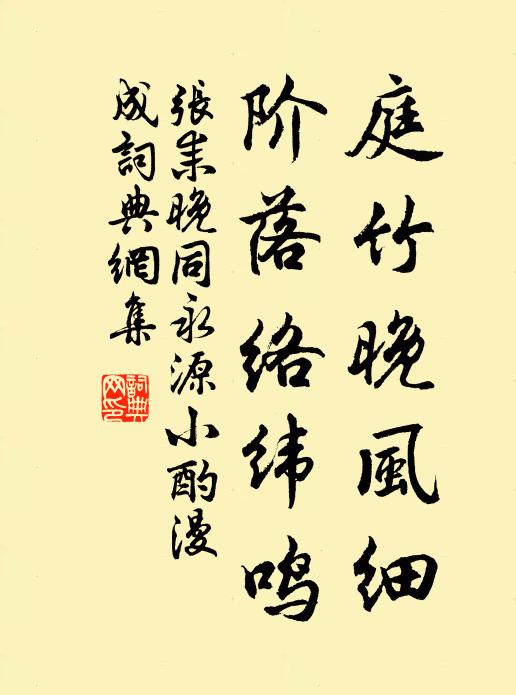 庭竹晚風细
阶落络纬鸣
張耒晚同永源小酌漫
成詞典網集
詞典
网印